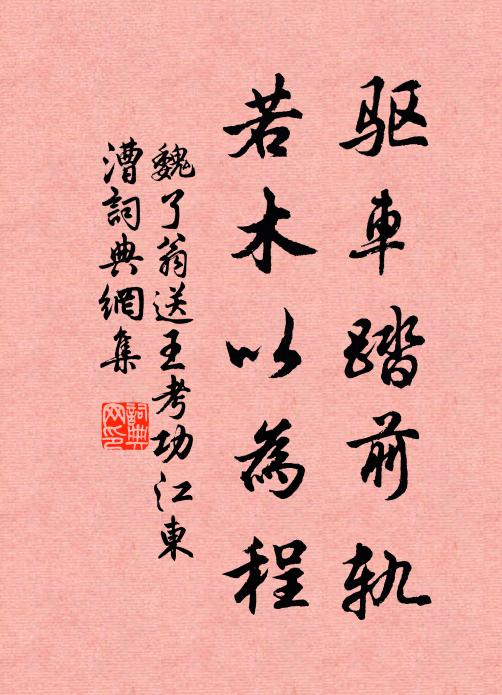 驱車踏前軌
若木以為程
魏了翁送王考功江東
漕詞典網集
詞典网印